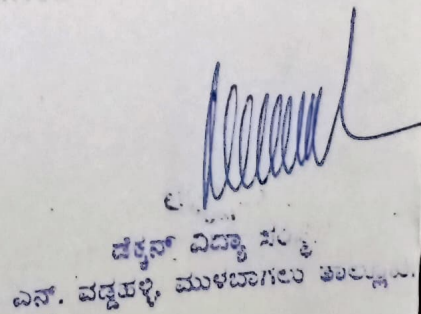 ಡೆಕ್ಕನ್ ವಿದ್ಯಾ
ಎನ್. ವಡ್ಡಹಳ್ಳಿ, ಮುಳಬಾಗಲು ತಾಲ್ಲೂಕು.